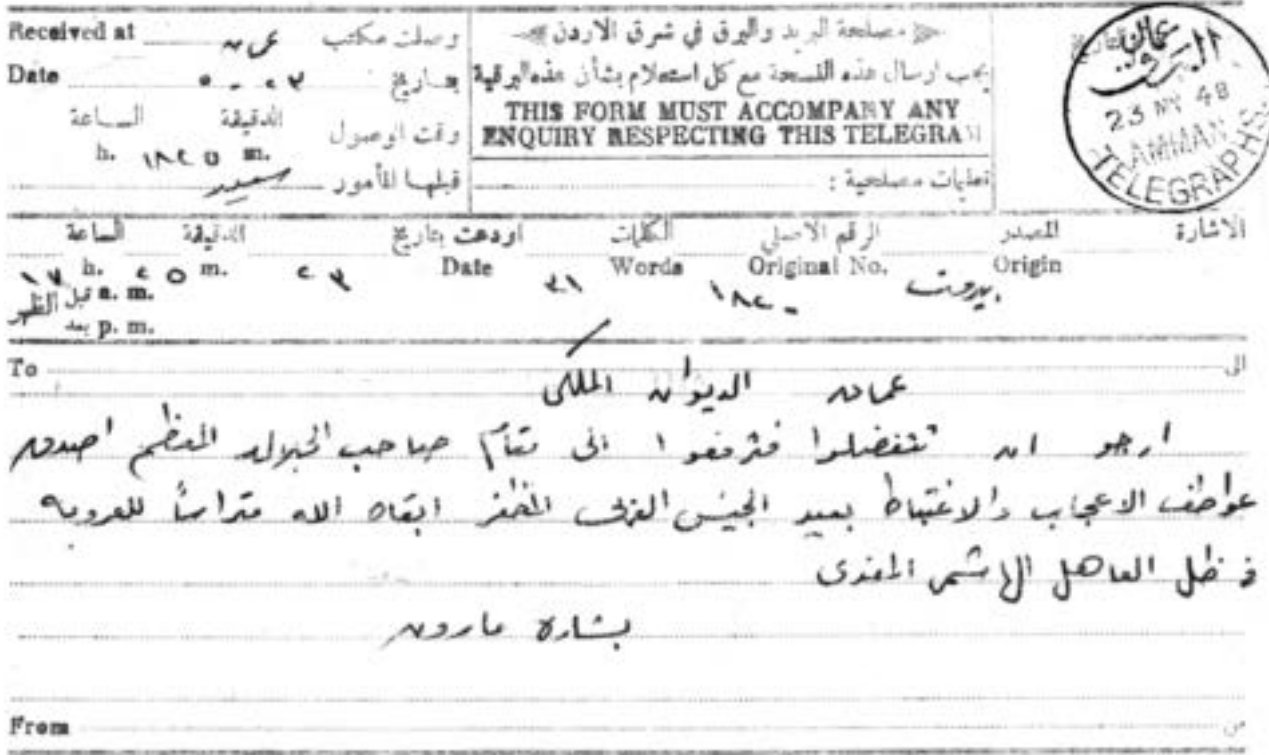 مصلحة البريد والبرق في شرق الاردن
يجب ارسال هذه النسخة مع كل استعلام بشأن هذه البرقية
THIS FORM MUST ACCOMPANY ANY
ENQUIRY RESPECTING THIS TELEGRAM
تعليمات مصلحية :
Received at عمان وصلت مكتب
Date ٢٣ - ٥ بتاريخ
الساعة الدقيقة وقت الوصول
h. ١٨٢٥ m.
قبلها المأمور سعيد
التاريخ
عمان
البرق
23 MY 48
AMMAN
TELEGRAPHS.
الاشارة المصدر الرقم الاصلي الكلمات اودعت بتاريخ الدقيقة الساعة
Origin Original No. Words Date m. h.
بيروت ١٨٢٠ ٣١ ٢٣ ٢٥ ١٧
قبل a. m. الظهر
بعد p. m.
To الى
عمان الديوان الملكي
ارجو ان تتفضلوا فترفعوا الى مقام صاحب الجلالة المعظم اصدق
عواطف الاعجاب والاغتباط بعيد الجيش العربي المظفر ابقاه الله للعروبة
في ظل العاهل الهاشمي المفدى
بشارة مارون
From من